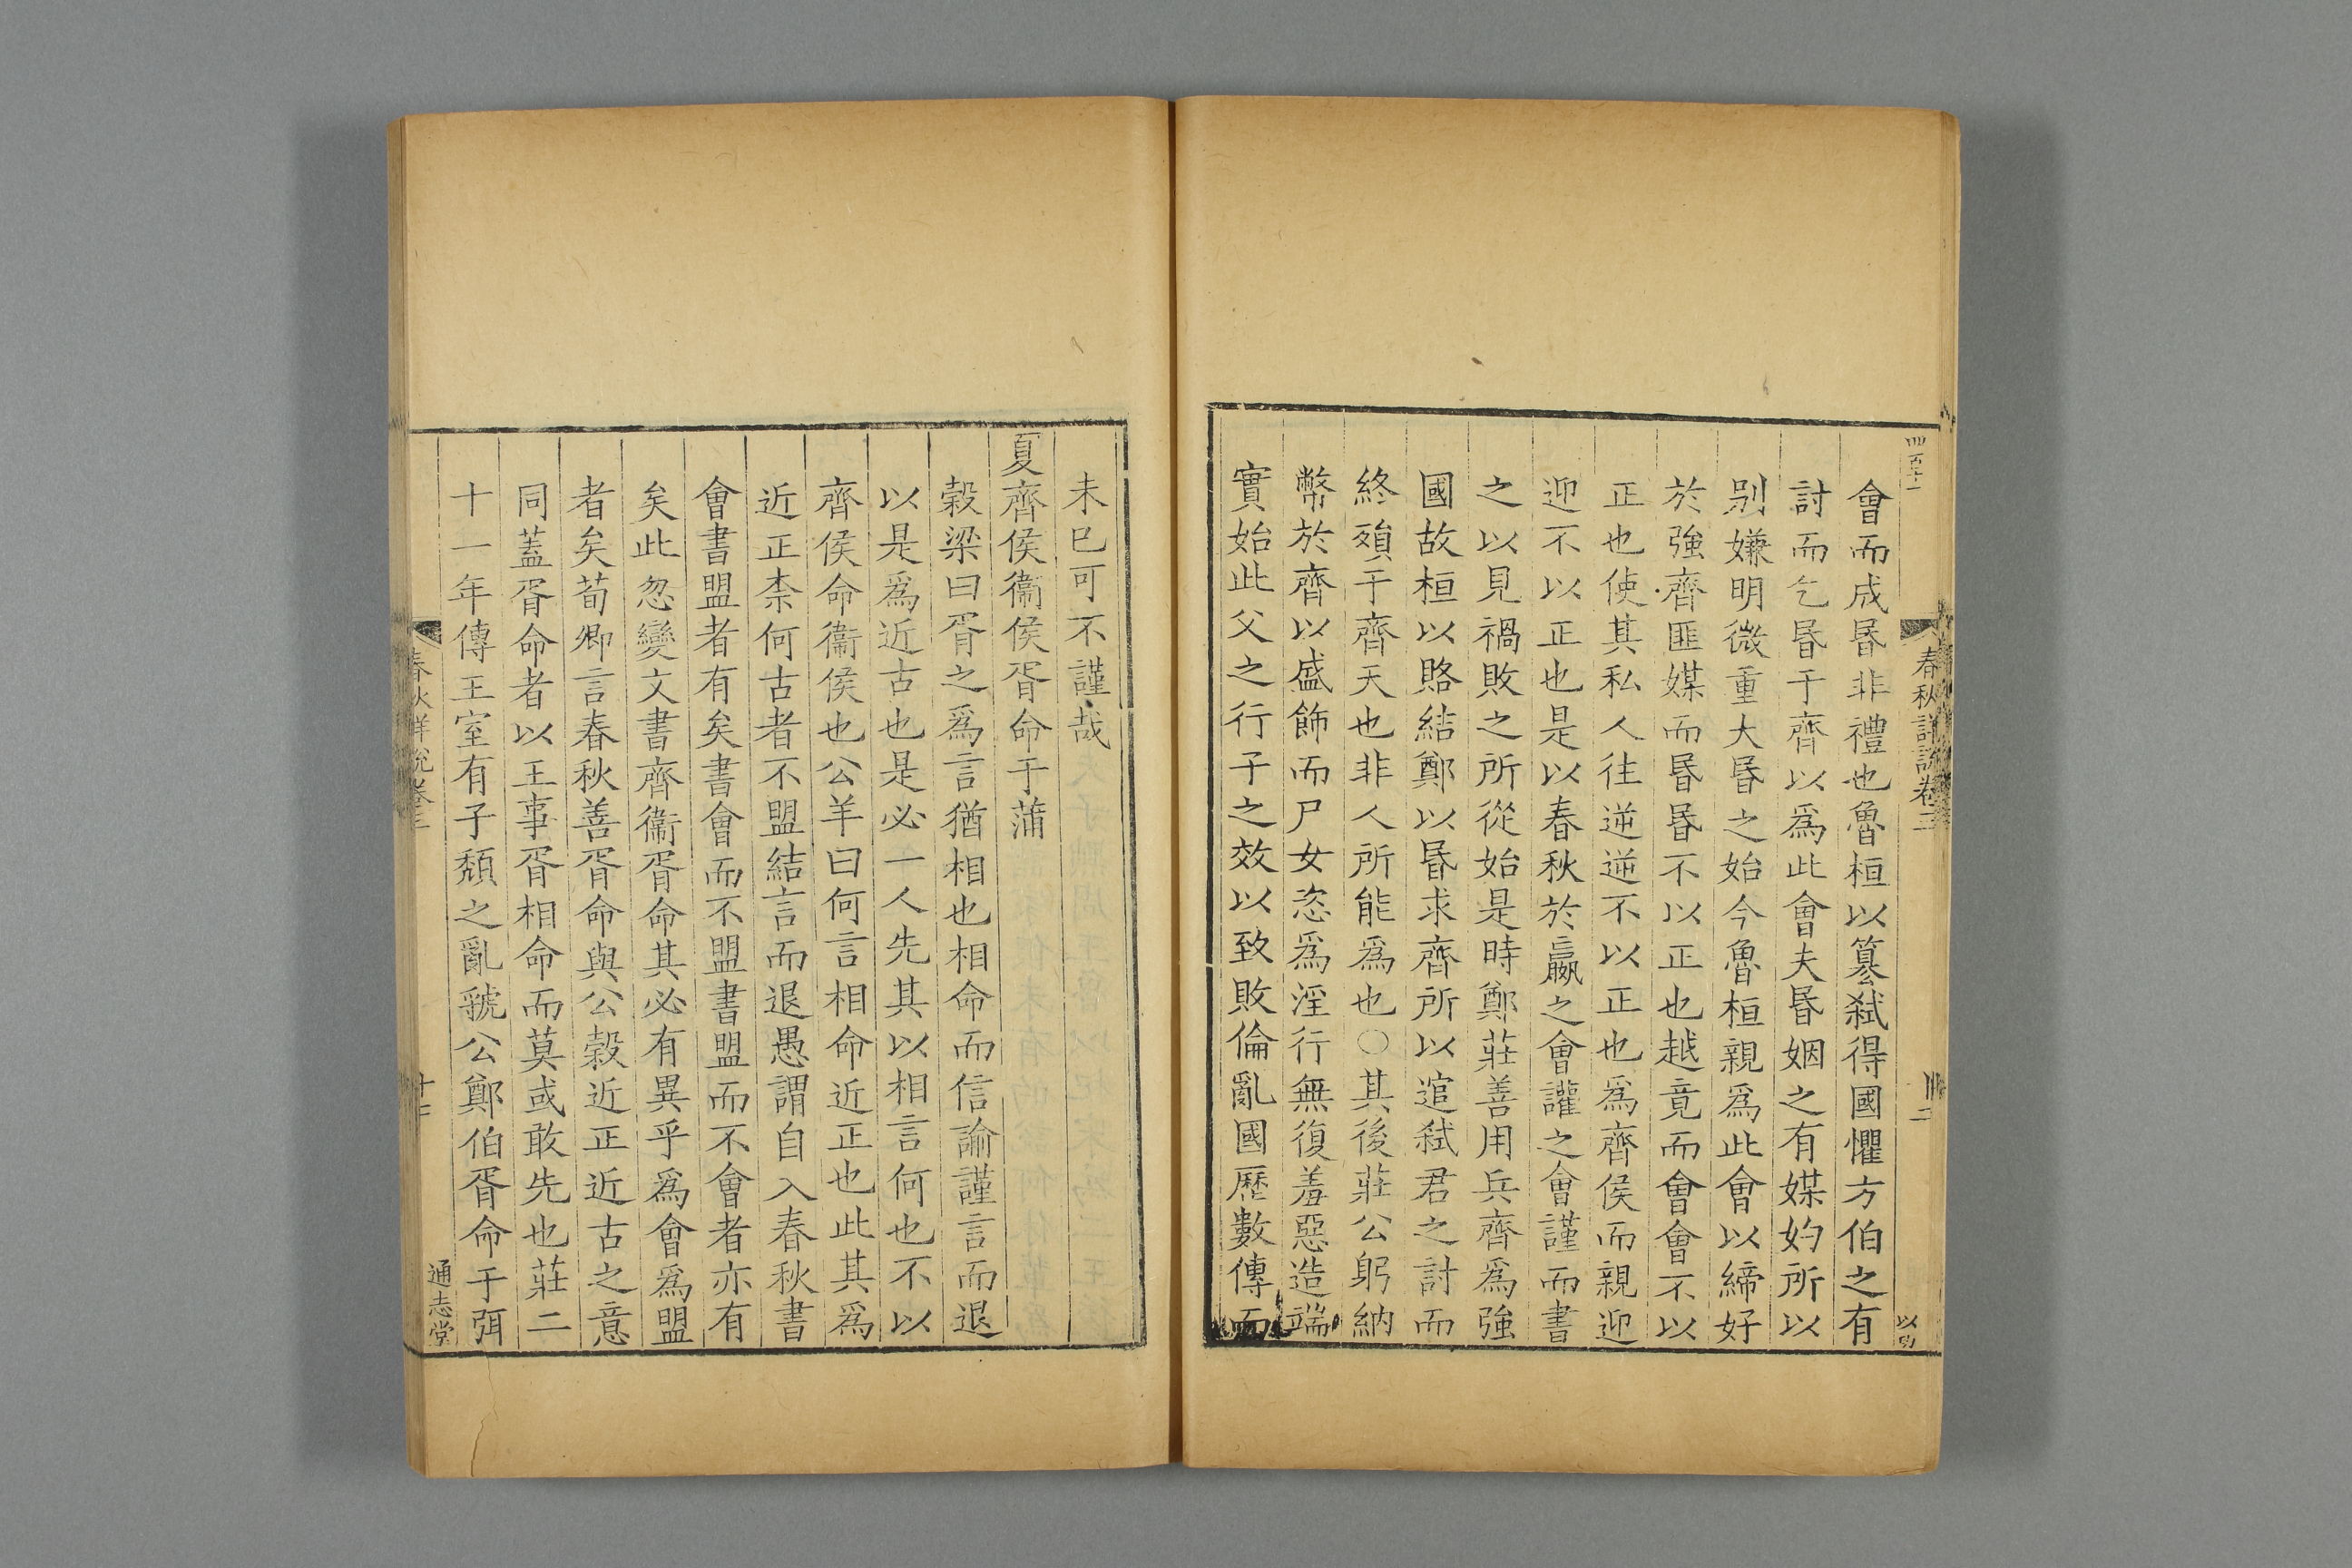 會而成昬非禮也魯桓以篡弑得國懼方伯之有
討而乞昬于齊以爲此會夫昬姻之有媒妁所以
别嫌明微重大昬之始今魯桓親爲此會以締好
於強齊匪媒而昬昬不以正也越竟而會會不以
正也使其私人往逆逆不以正也爲齊侯而親迎
迎不以正也是以春秋於嬴之會讙之會謹而書
之以見禍敗之所從始是時鄭莊善用兵齊爲強
國故桓以賂結鄭以昬求齊所以逭弑君之討而
終殞于齊天也非人所能爲也○其後莊公躬納
幣於齊以盛飾而尸女恣爲淫行無復羞惡造端
實始此父之行子之效以致敗倫亂國歷數傳而
春秋詳說卷三
未已可不謹哉
夏齊侯衞侯胥命于蒲
榖梁曰胥之爲言猶相也相命而信諭謹言而退
以是爲近古也是必一人先其以相言何也不以
齊侯命衞侯也公羊曰何言相命近正也此其爲
近正柰何古者不盟結言而退愚謂自入春秋書
會書盟者有矣書會而不盟書盟而不會者亦有
矣此忽變文書齊衞胥命其必有異乎爲會爲盟
者矣荀卿言春秋善胥命與公榖近正近古之意
同蓋胥命者以王事胥相命而莫或敢先也莊二
十一年傳王室有子頹之亂虢公鄭伯胥命于弭
春秋詳說卷三
通志堂